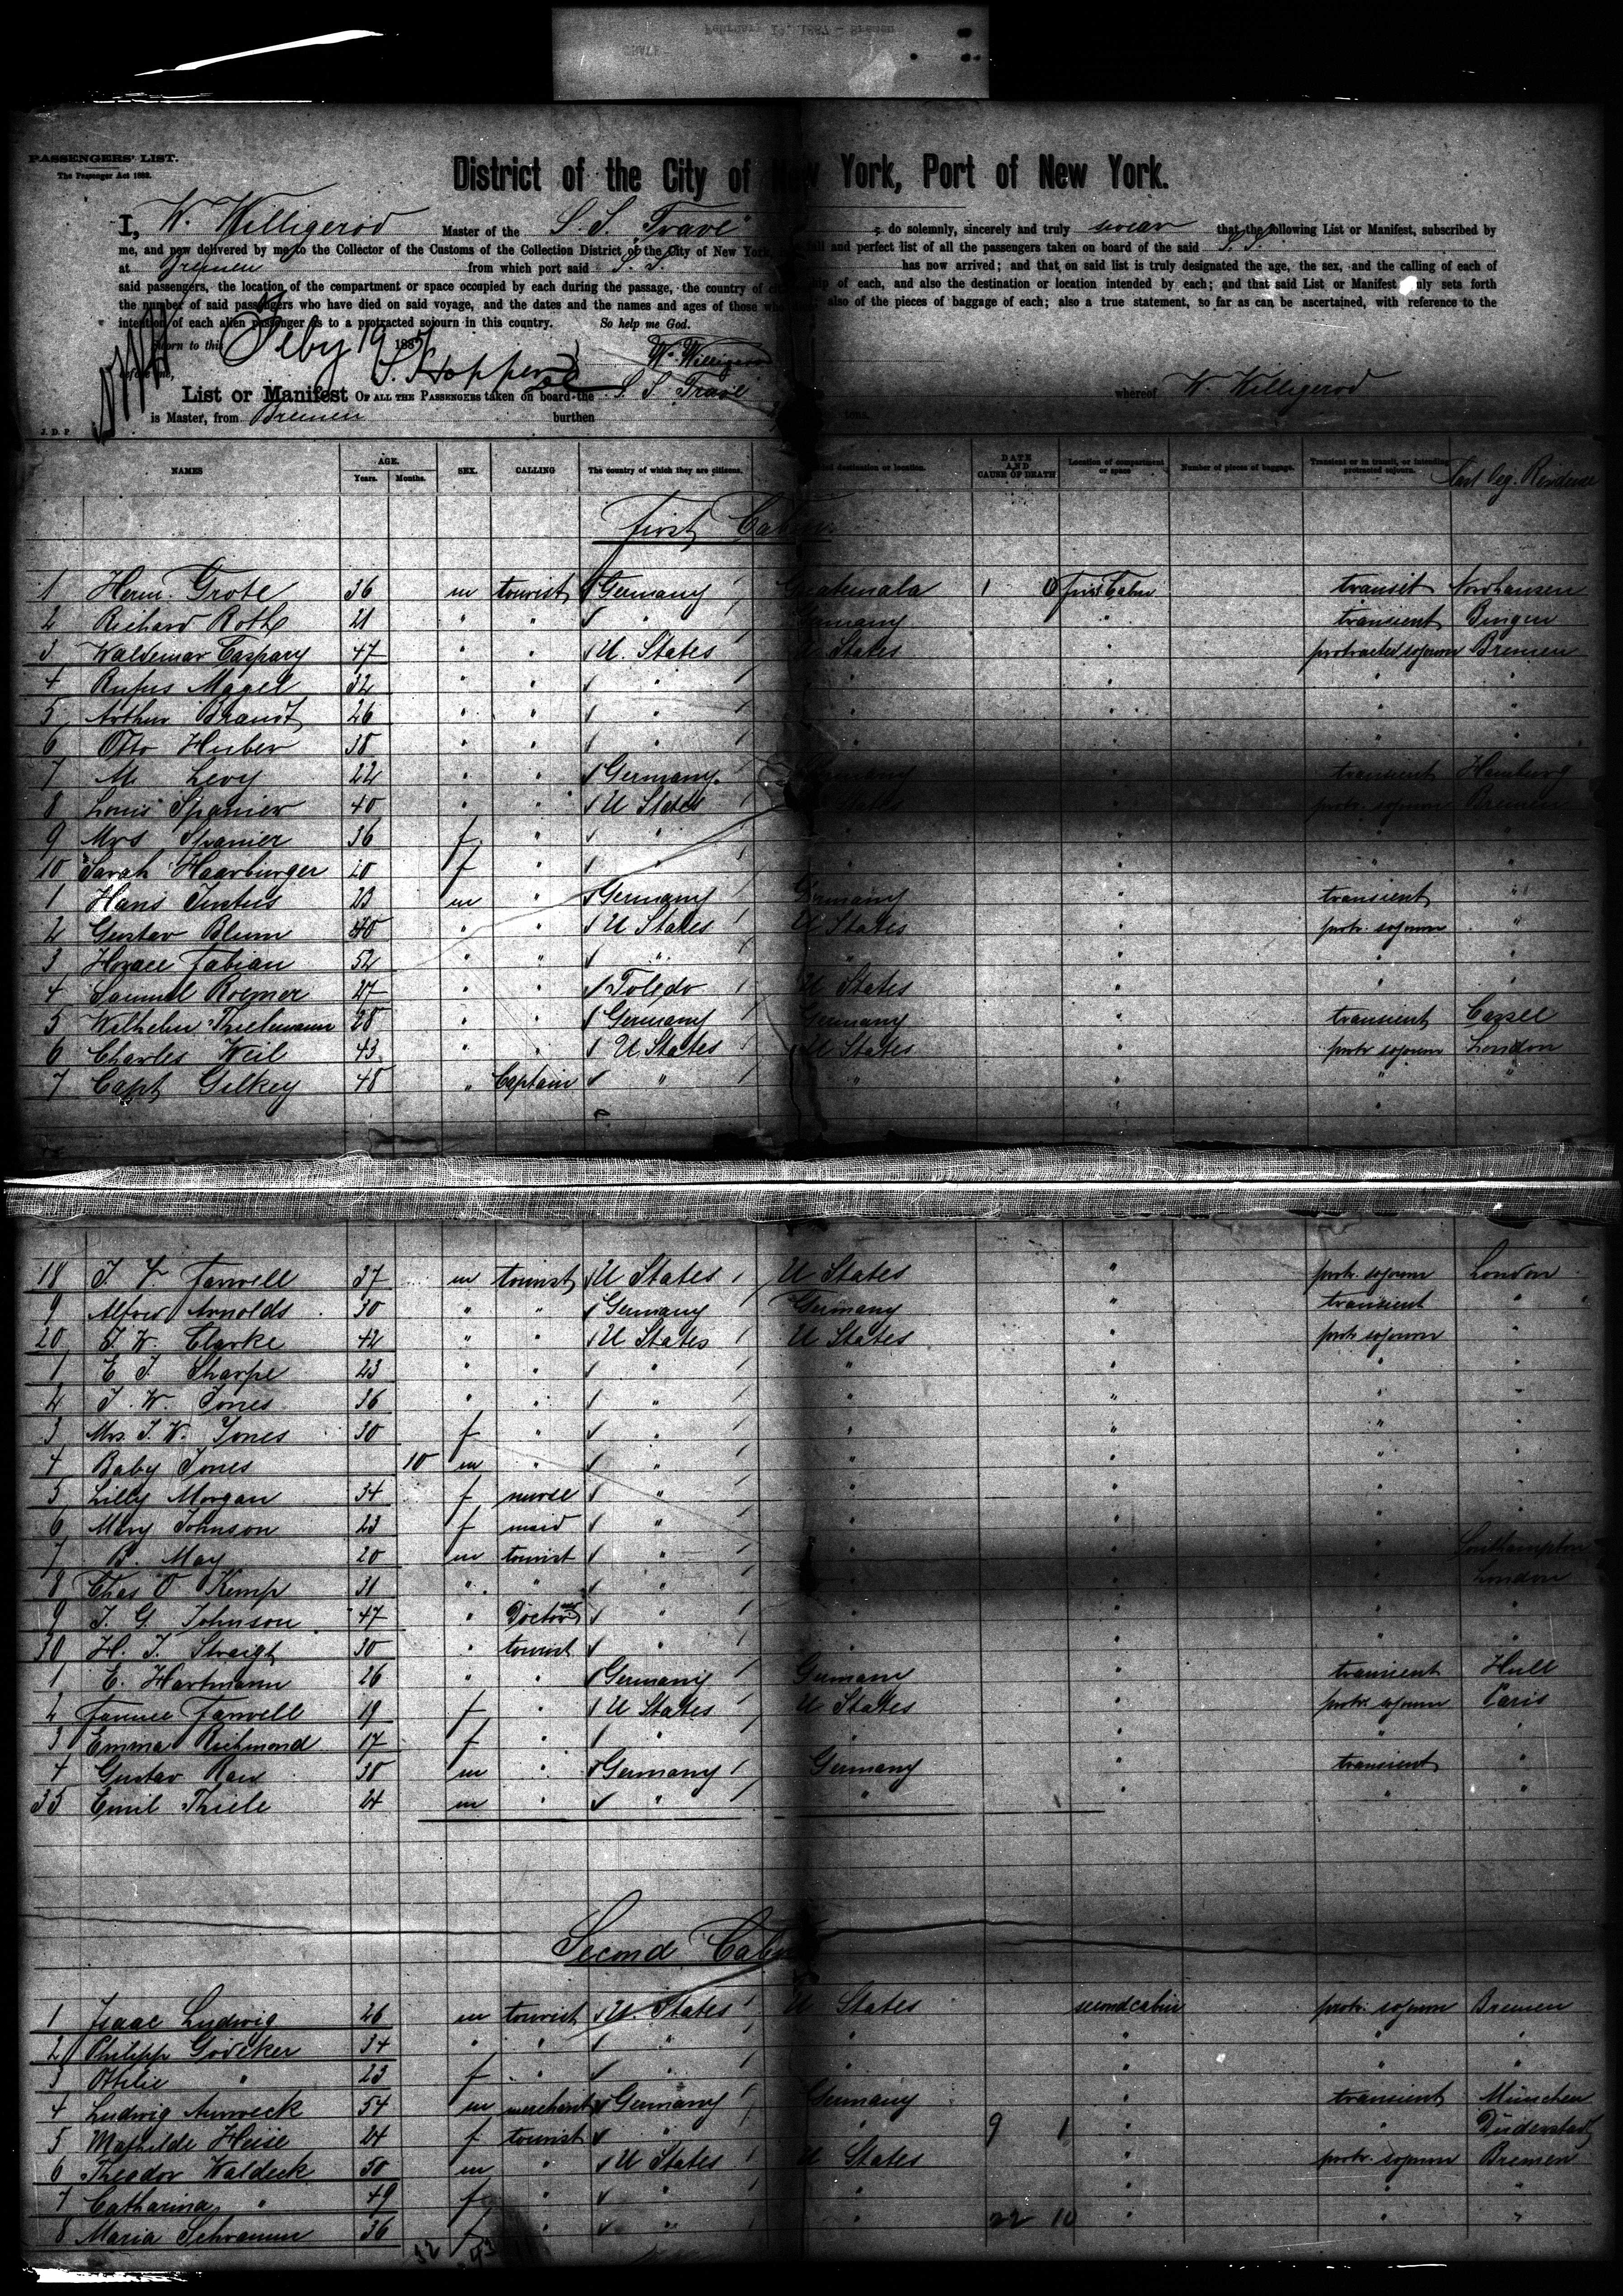 February 19, 1887 - Bremen
PASSENGERS' LIST.
The Passenger Act 1882.
District of the City of New York, Port of New York.
I, W. Willigerod Master of the S. S. "Trave" do solemnly, sincerely and truly swear that the following List or Manifest, subscribed by
me, and now delivered by me to the Collector of the Customs of the Collection District of the City of New York, full and perfect list of all the passengers taken on board of the said S. S.
at Bremen from which port said S. S. has now arrived; and that on said list is truly designated the age, the sex, and the calling of each of
said passengers, the location of the compartment or space occupied by each during the passage, the country of citizenship of each, and also the destination or location intended by each; and that said List or Manifest truly sets forth
the number of said passengers who have died on said voyage, and the dates and the names and ages of those who died; also of the pieces of baggage of each; also a true statement, so far as can be ascertained, with reference to the
intention of each alien passenger as to a protracted sojourn in this country. So help me God.
Sworn to this Feby 19 1887 W. Willigerod
before me,
List or Manifest OF ALL THE PASSENGERS taken on board the S. S Trave whereof W. Willigerod
is Master, from Bremen burthen tons.
J. D. P.
NAMES AGE. Years. Months. SEX. CALLING The country of which they are citizens. destination or location. DATE AND CAUSE OF DEATH Location of compartment or space Number of pieces of baggage. Transient or in transit, or intending protracted sojourn. Last leg. Residence
First Cabin
1 Herm. Grote 36 m tourist Germany Guatemala 1 0 first Cabin transit Nordhausen
2 Richard Roth 21 " " " Germany " transient Bingen
3 Waldemar Caspary 47 " " U. States U States " protracted sojourn Bremen
4 Rufus Magel 32 " " " " " " "
5 Arthur Brandt 26 " " " " " " "
6 Otto Huber 38 " " " " " " "
7 M. Levy 22 " " Germany. Germany " transient Hamburg
8 Louis Spanier 40 " " U States U States " protr. sojourn Bremen
9 Mrs Spanier 36 f " " " " " "
10 Sarah Haarburger 20 f " " " " " "
1 Hans Justus 23 m " Germany Germany " transient "
2 Gustav Blum 40 " " U States U States " protr. sojourn "
3 Horace Fabian 52 " " " " " " "
4 Samuel Roemer 27 " " Toledo U States " " "
5 Wilhelm Thielemann 28 " " Germany Germany " transient Cassel
6 Charles Weil 43 " " U States U States " protr sojourn London
7 Capt Gilkey 48 " Captain " " " " "
18 J. V Farwell 37 m tourist U States U States " protr. sojourn London
9 Alfred Arnolds 30 " " Germany Germany " transient "
20 J. W. Clarke 42 " " U States U States " protr sojourn "
1 E J. Sharpe 23 " " " " " " "
2 J. W. Jones 36 " " " " " " "
3 Mrs. J. W. Jones 30 f " " " " " "
4 Baby Jones 10 m " " " " " "
5 Lilly Morgan 34 f nurse " " " " "
6 Mary Johnson 23 f maid " " " " "
7 B. May 20 m tourist " " " " Southampton
8 Chas O Kemp 31 " " " " " " London
9 J. G. Johnson 47 " Doctor " " " " "
30 H. J. Straight 30 " tourist " " " " "
1 E. Hartmann 26 " " Germany Germany " transient Hull
2 Fannie Farwell 19 f " U States U States " protr sojourn Paris
3 Emma Richmond 17 f " " " " " "
4 Gustav Rau 38 m " Germany Germany " transient "
35 Emil Thiele 24 m " " " " " "
Second Cabin
1 Isaac Ludwig 26 m tourist U. States U States second cabin protr. sojourn Bremen
2 Philipp Gödeker 34 " " " " " " "
3 Ottilie " 23 f " " " " " "
4 Ludwig Auweck 54 m merchant Germany Germany " transient München
5 Mathilde Heise 24 f tourist " " 9 1 " " Duderstadt
6 Theodor Waldeck 50 m " U States U States " protr. sojourn Bremen
7 Catharina " 49 f " " " " " "
8 Maria Schramm 36 f " " " 22 10 " " "